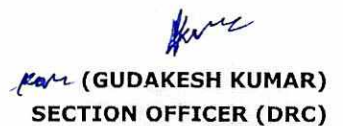 (GUDAKESH KUMAR)
SECTION OFFICER (DRC)